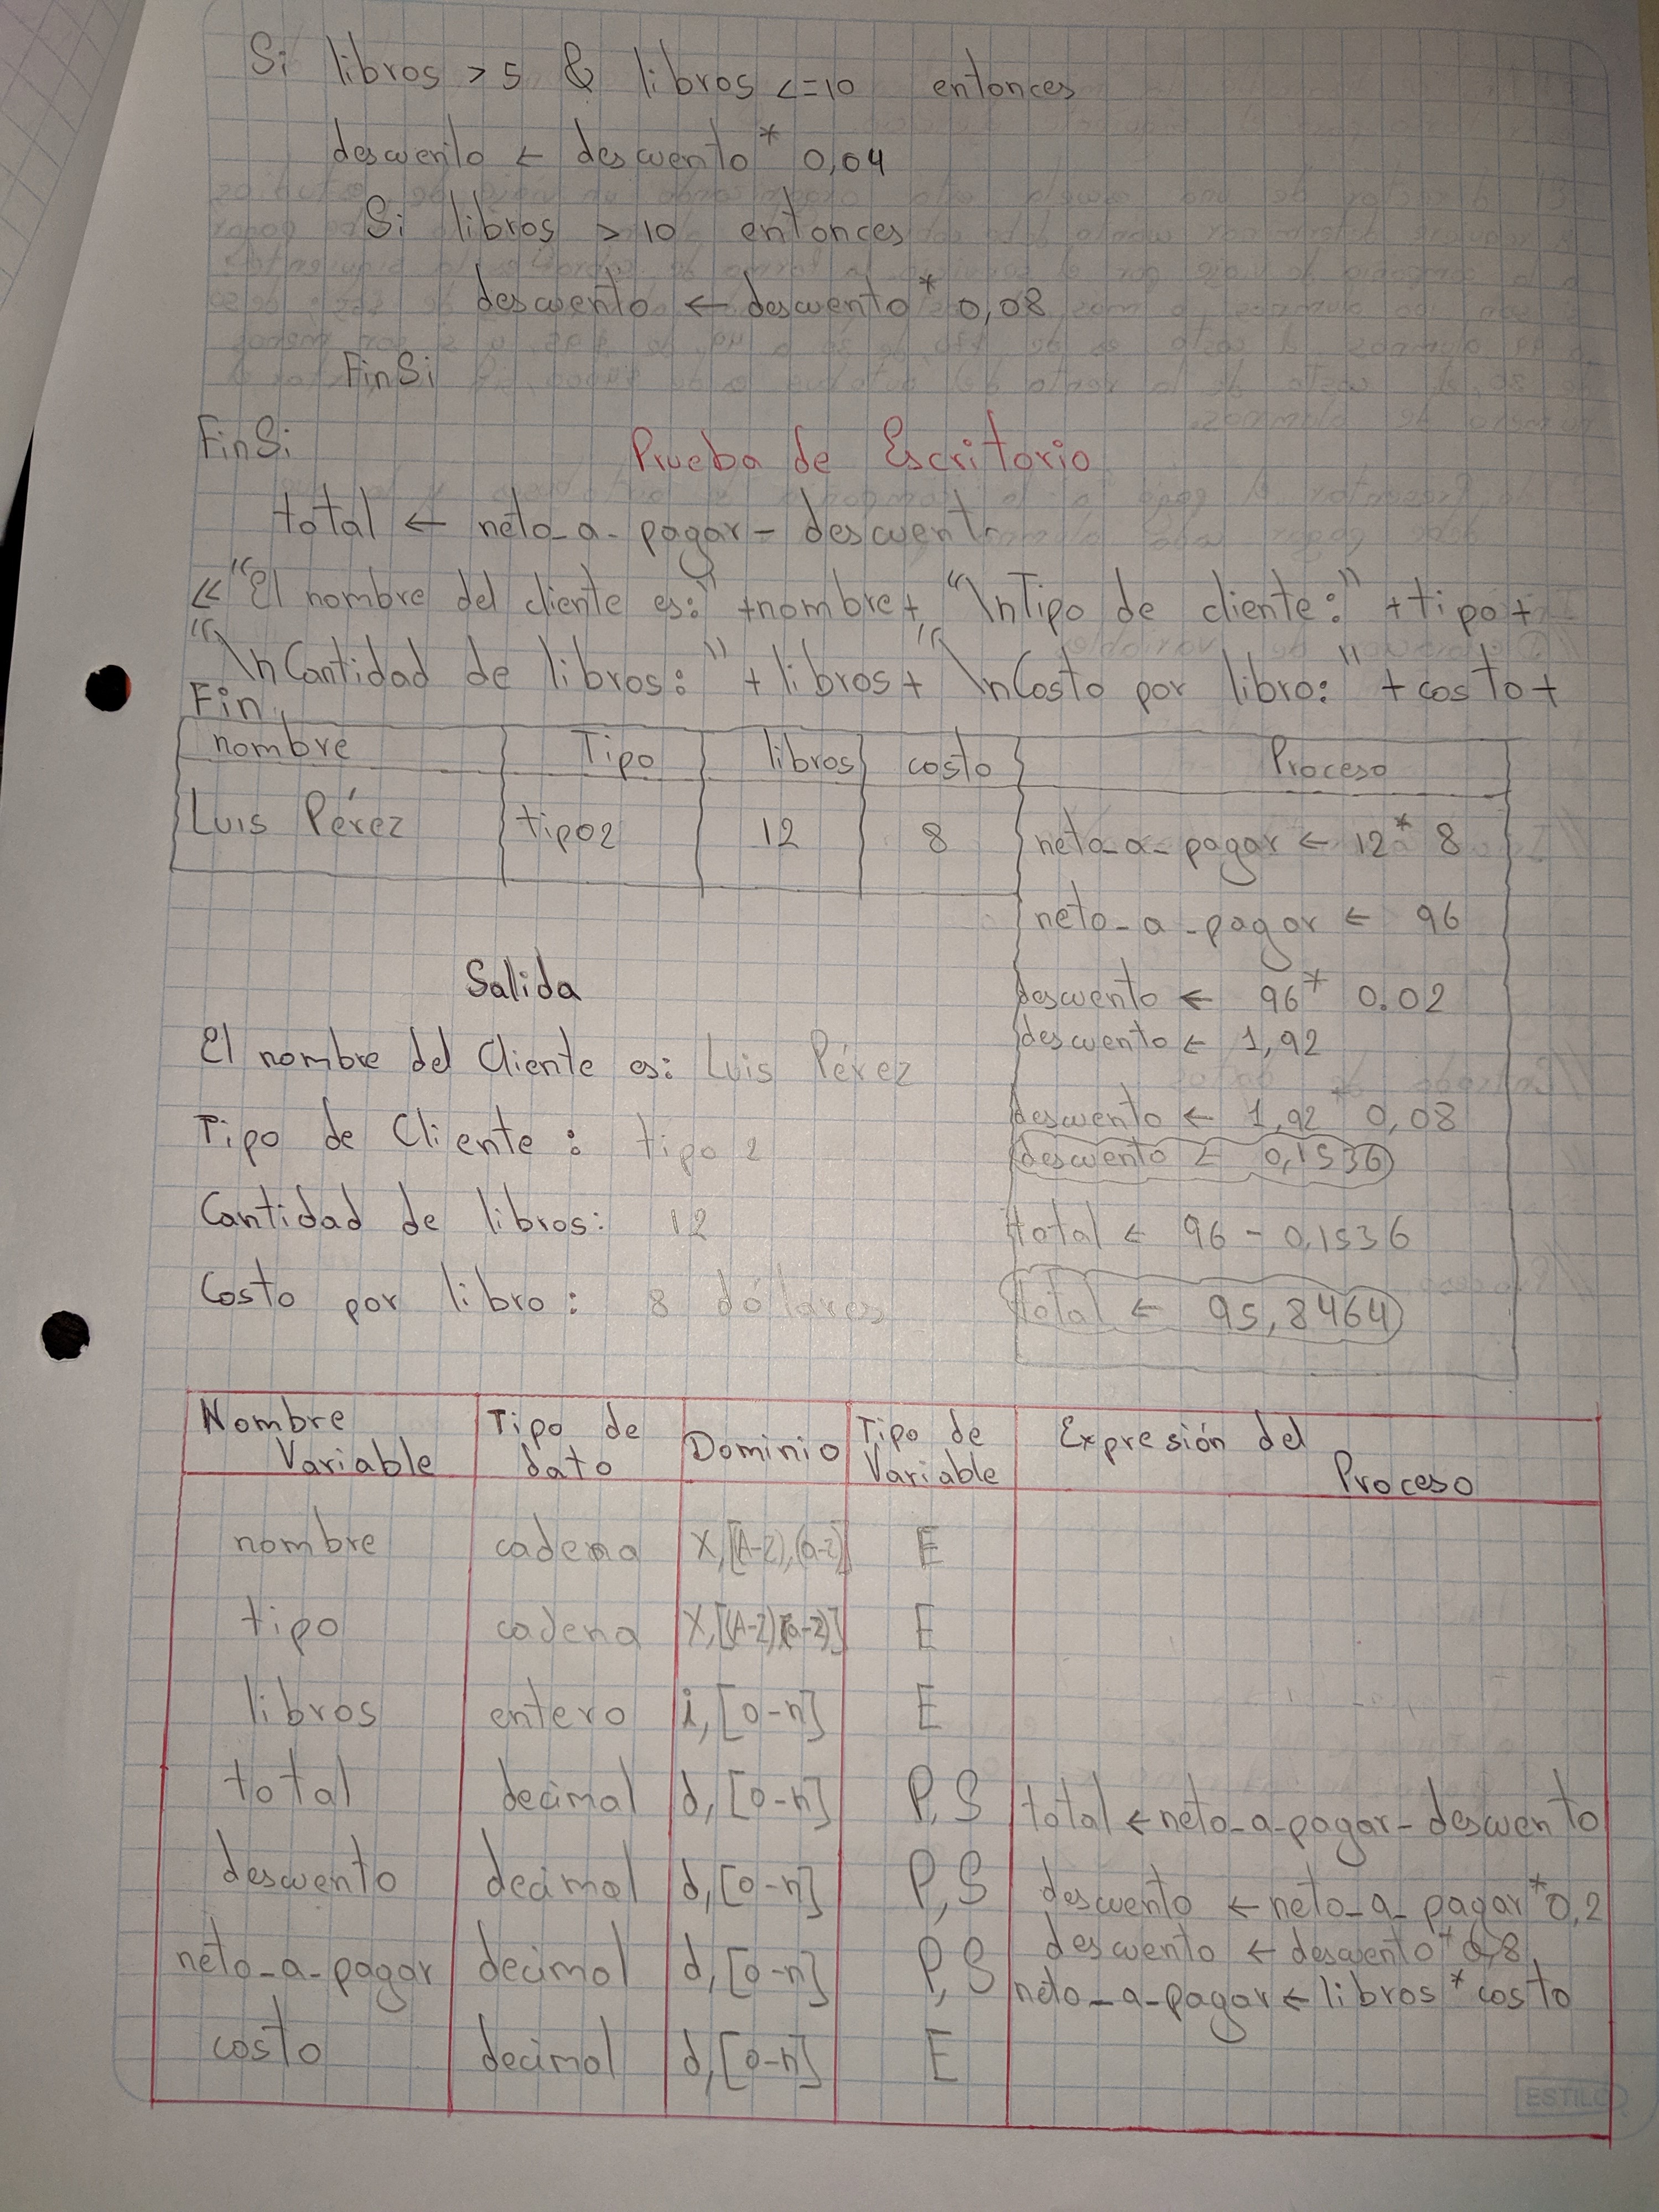 Si libros > 5 & libros <=10 entonces
descuento ← descuento * 0,04
Si libros > 10 entonces
descuento ← descuento * 0,08
FinSi
FinSi
Prueba de Escritorio
total ← neto_a_pagar - descuent
≪ "El nombre del cliente es:" +nombre+ "\nTipo de cliente:" +tipo+
"\nCantidad de libros:" +libros+ "\nCosto por libro:" +costo+
Fin
nombre Tipo libros costo Proceso
Luis Pérez tipo2 12 8 neto_a_pagar ← 12 * 8
neto_a_pagar ← 96
Salida
descuento ← 96 * 0.02
descuento ← 1,92
El nombre del Cliente es: Luis Pérez
descuento ← 1,92 * 0,08
Tipo de Cliente: tipo 2
descuento ← 0,1536
Cantidad de libros: 12
total ← 96 - 0,1536
Costo por libro: 8 dólares
total ← 95,8464
Nombre Variable Tipo de dato Dominio Tipo de Variable Expresión del Proceso
nombre cadena X,[(A-Z),(a-z)] E
tipo cadena X,[(A-Z)(a-z)] E
libros entero i,[0-n] E
total decimal d,[0-n] P,S total ← neto_a_pagar - descuento
descuento decimal d,[0-n] P,S descuento ← neto_a_pagar * 0,2
descuento ← descuento * 0,8
neto_a_pagar decimal d,[0-n] P,S neto_a_pagar ← libros * costo
costo decimal d,[0-n] E
ESTILO